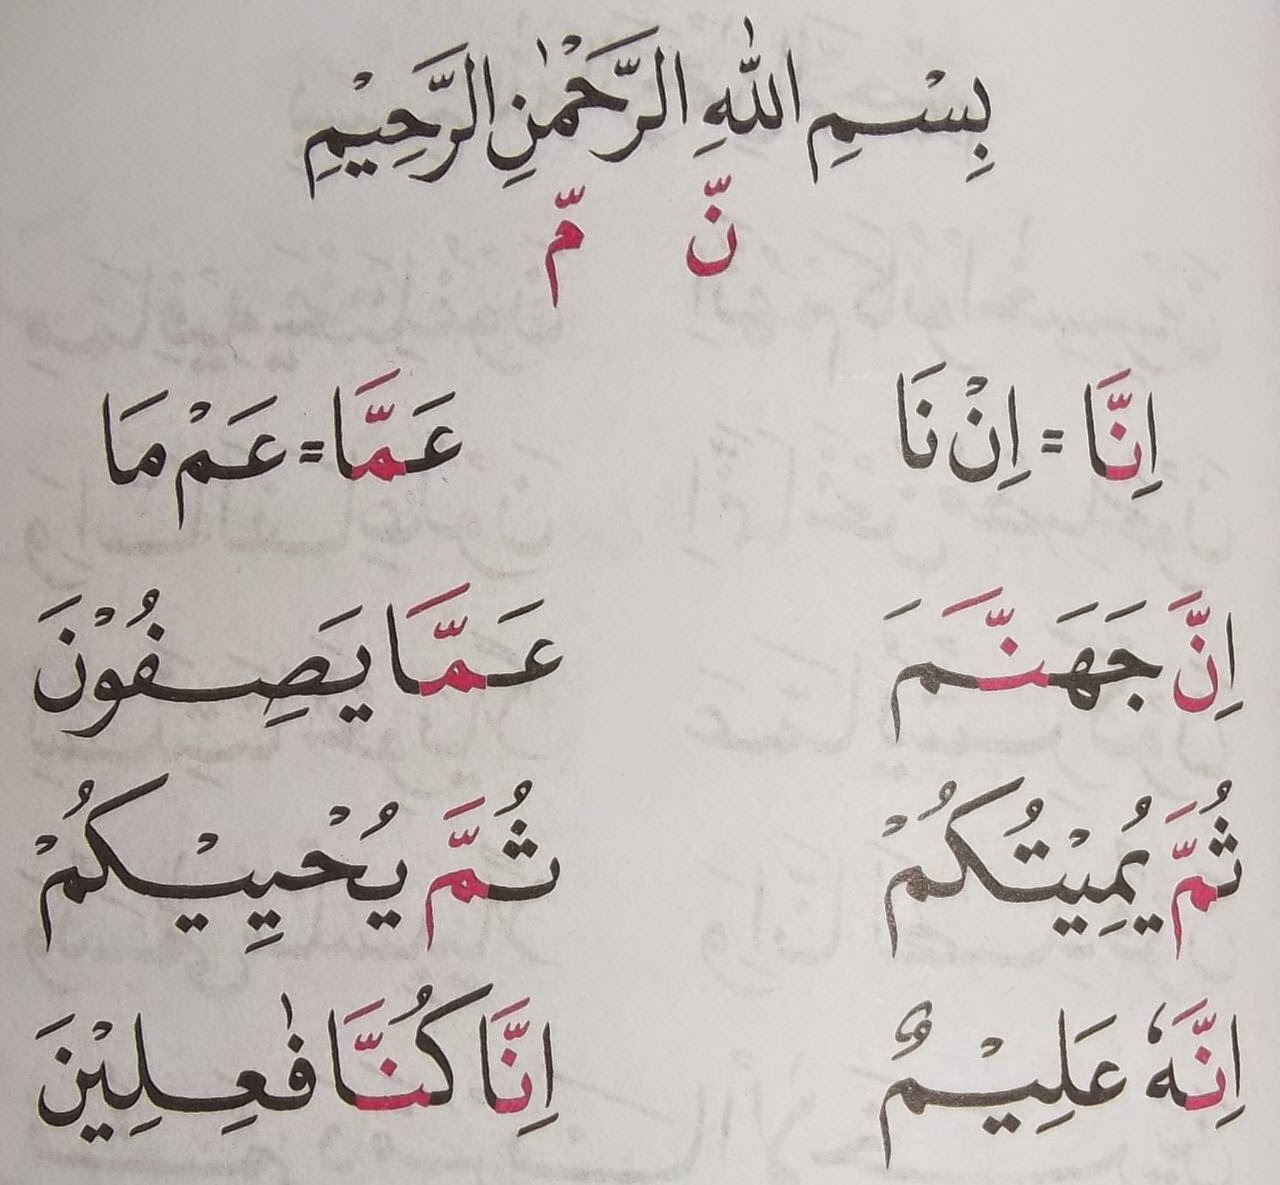 بِسْمِ اللّٰهِ الرَّحْمٰنِ الرَّحِيْمِ
نّ مّ
اِنَّا = اِنْ نَا عَمَّا = عَمْ مَا
اِنَّ جَهَنَّمَ عَمَّا يَصِفُوْنَ
ثُمَّ يُمِيْتُكُمْ ثُمَّ يُحْيِيْكُمْ
اِنَّهٗ عَلِيْمٌ اِنَّا كُنَّا فٰعِلِيْنَ